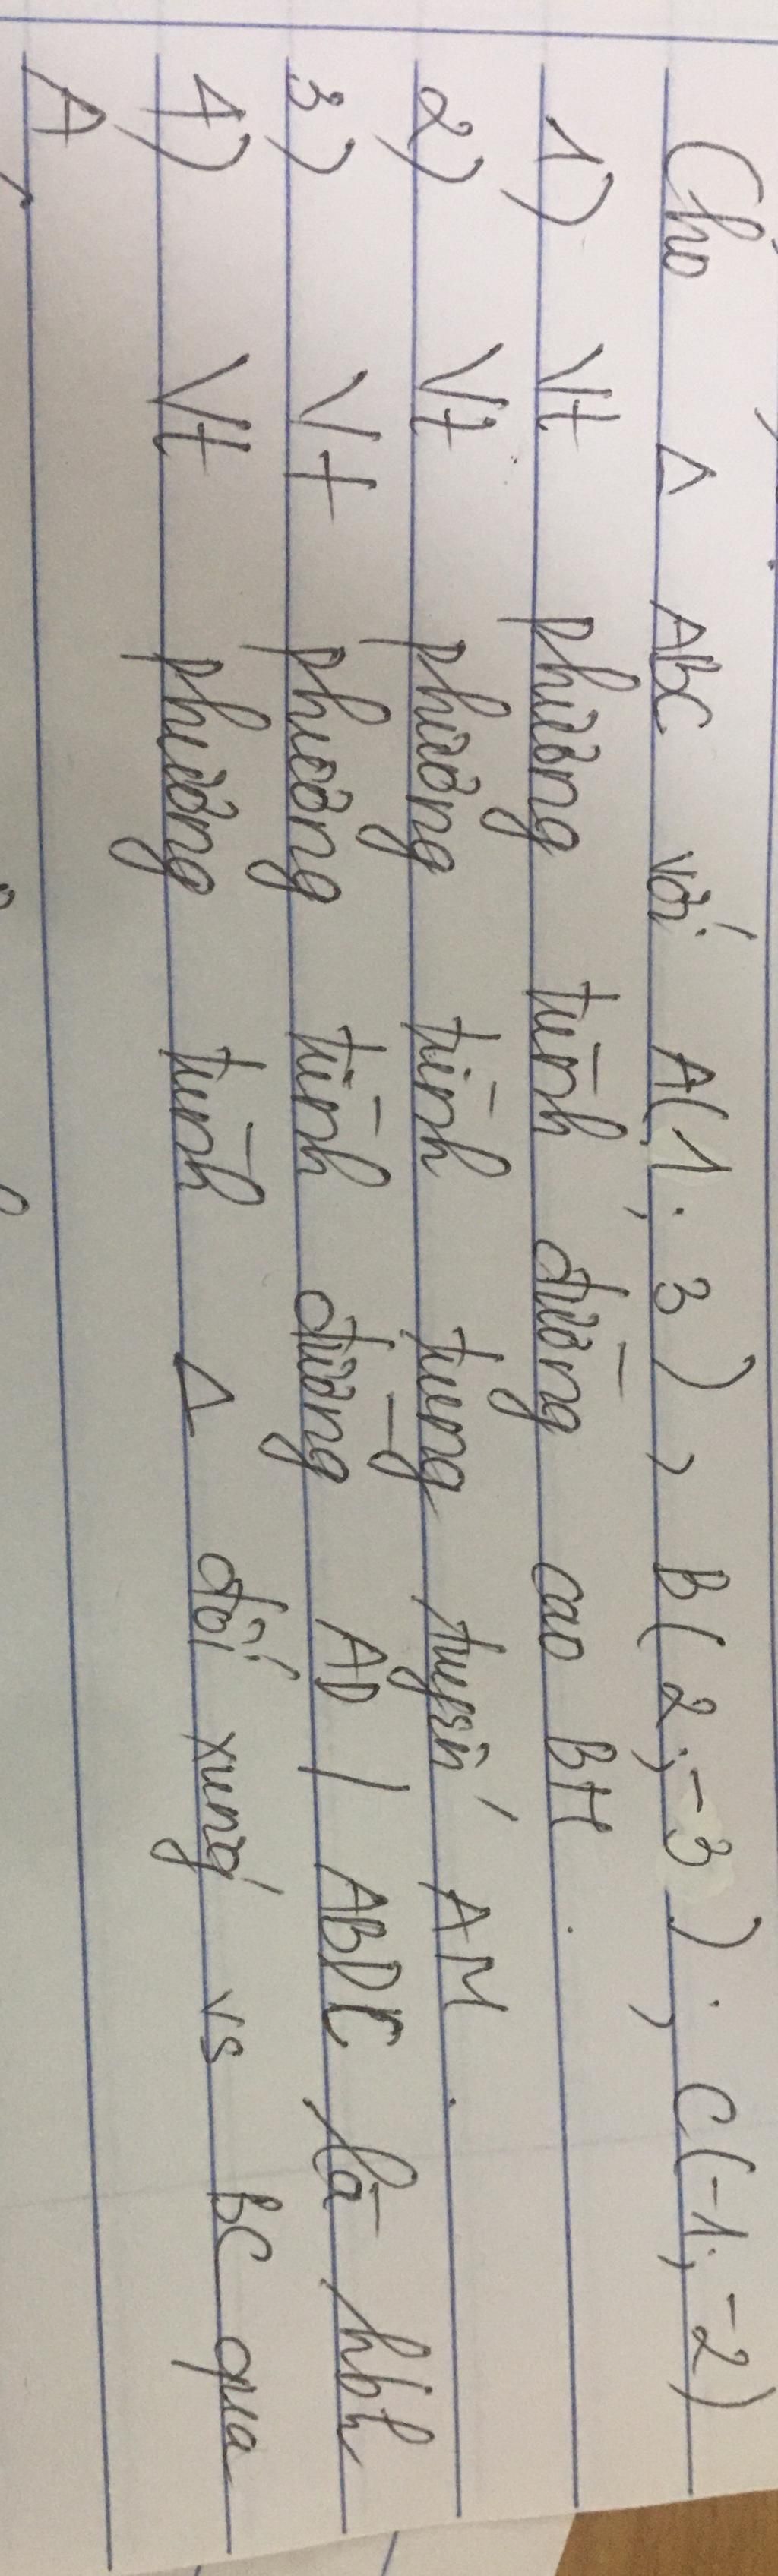 Cho Δ ABC với A(1; 3), B(2; -3); C(-1; -2)
1) Vt phường trình đường cao BH.
2) Vt phường trình trung tuyến AM.
3) Vt phường trình đường AD / ABDC là hbh
4) Vt phường trình Δ đối xứng vs BC qua
A